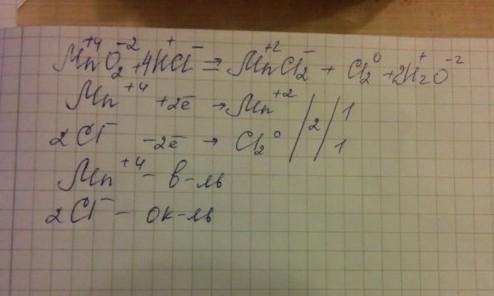 Mn⁺⁴O₂⁻² + 4H⁺Cl⁻ = Mn⁺²Cl₂⁻ + Cl₂⁰ + 2H₂⁺O⁻²
Mn⁺⁴ +2ē → Mn⁺² / 2 / 1
2Cl⁻ -2ē → Cl₂⁰ / / 1
Mn⁺⁴ - в-ль
2Cl⁻ - ок-ль